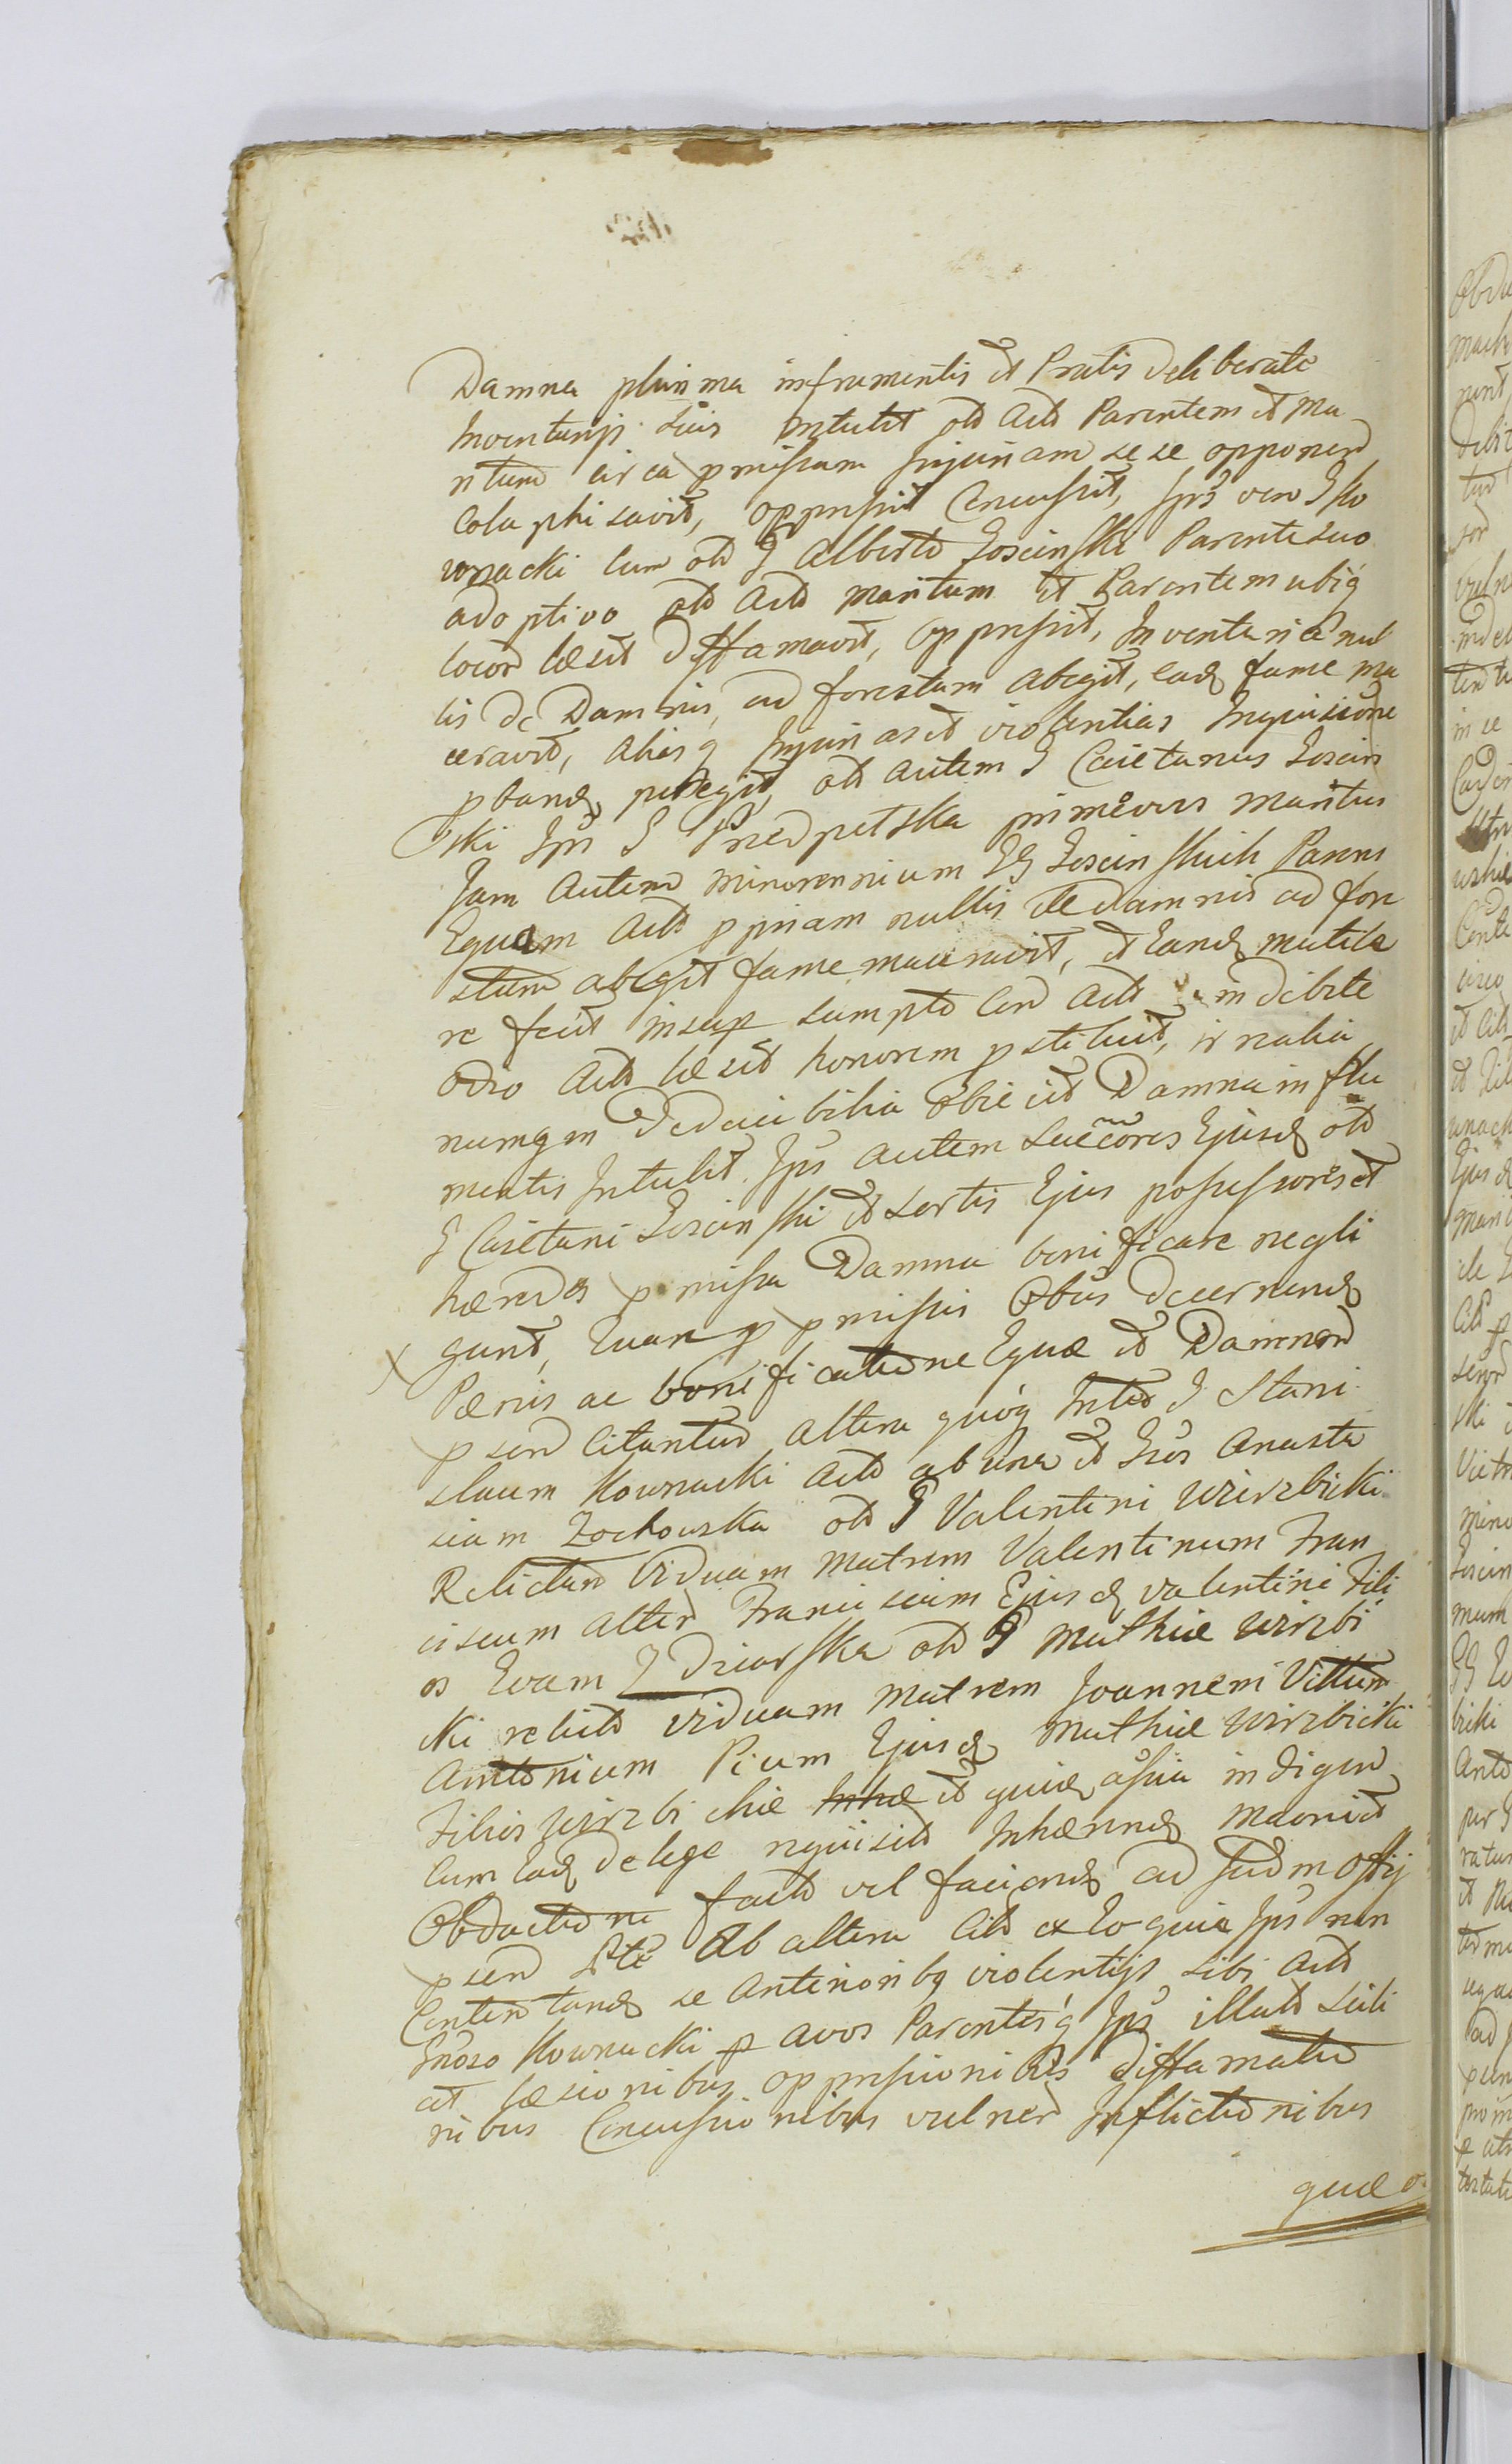 Damna plurima in frumentis et Pratis deliberate
Inventarijs suis intulit old Acto Parentem et Ma
ritum circa pmissam Injuriam sese opponend
Colaphisavit, oppressit Concussit, Ips vero G Ko
wnacki cum old G Alberto Łosciński Parente suo
adoptivo old Acto maritum et Parentem ubiq
locor læsit diffamavit, oppressit, Inventaria nul
lis de Damnis, ad forestum abegit, eadq fame ma
ceravit, aliasq Injurias et violentias Inquisione
pbandq peregit, old autem G Caietanus Łoscin
ski Ips G primævus maritus
Jam autem minorennium GG Łoscinskich Parens
Equam Acto ppriam nullis de damnis ad fore
stum abegit fame maceravit, et eandq mutila
re fecit insup sumpto Con Acto indebite
odio Acto læsit honorem pstituit, irrealia
numqm deducibilia obiecit Damna in fru
mentis Intulit. Ips autem Succores Ejusdq old
G Caietani Łosciński et sortis Ejus possessores et
hæredes pmissa Damna bonificare negli
gunt, quare p pmissis Obus decernendq
Pænis ac bonificatione Equæ et Damnor
psen Citantur altera quoq Inter G Stani
slaum Kownacki Acto ab una et Gros Anasta
siam Zochowska old G Valentini Wierzbicki
Relictam Viduam Matrem Valentinum Fran
ciscum alter Franciscum Ejusdq Valentini Fili
os Evam Zdziarska old G Mathiæ Wirzbi
cki relicto viduam Matrem Joannem Vittum
Antonium Pium Ejusdq Mathiæ Wirzbicki
Filios Wirzbickie et quicq assia indigen
Cum Eadq de lege requisito Inhærendq
Obductioni facto vel faciendq ad Judm Offij
psen Ab altera Cito ex Eo quia Ips non
Contentandq se Anterioribq violentijs sibi Acto
Groso Kownacki p avos Parentesq Ips illato scili
at læsionibus oppressionibus diffamatio
nibus Concussionibus vulner Inflictionibus
quæ